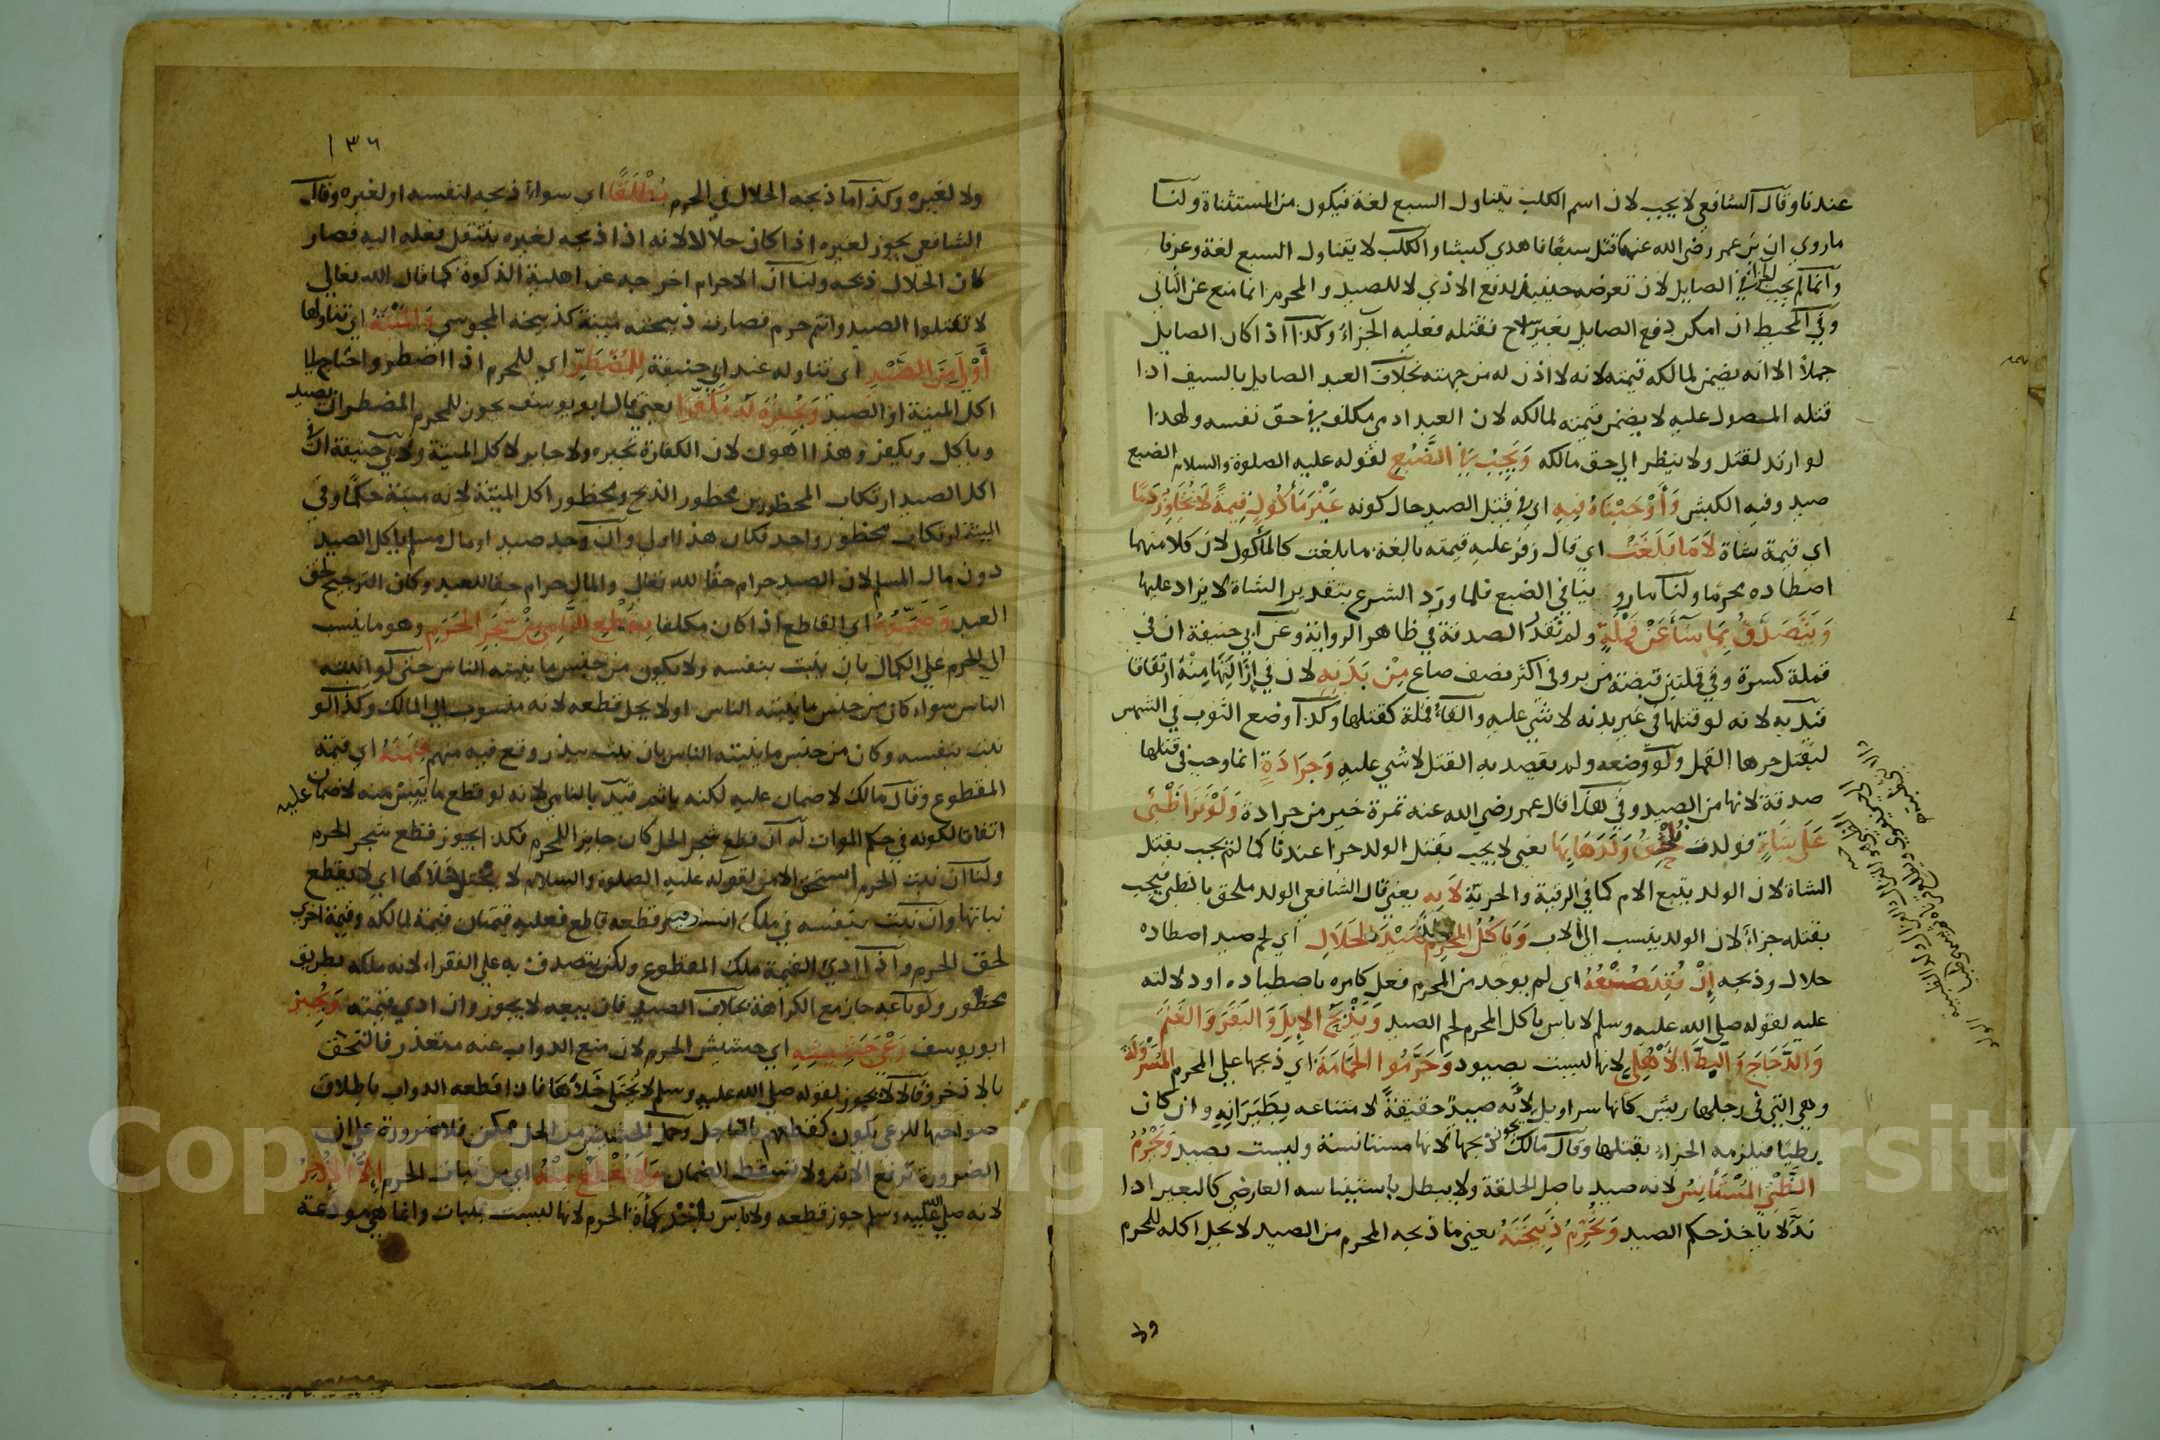 عندنا وقال الشافعي لا يجب لان اسم الكلب يتناول السبع لغة فيكون من المستثناة ولنا
ما روي ان بن عمر رضي الله عنهما قتل سبعا فاهدي كبشا والكلب لا يتناول السبع لغة وعرفا
وانما لم يجب الجزاء في الصايل لان تعرضه حينئذ لدفع الاذي لا للصيد والمحرم انما منع عن الثاني
وفي المحيط ان امكن دفع الصايل بغير سلاح فقتله فعليه الجزاء وكذا اذا كان الصايل
جملا الا انه يضمن لمالكه قيمته لانه لا اذن له من جهته بخلاف العبد الصايل بالسيف اذا
قتله المصول عليه لا يضمن قيمته لمالكه لان العبد ادمي مكلف في حق نفسه ولهذا
لو ارتد لقتل ولا ينظر الي حق مالكه وَيَجِبُ في الضَّبُعِ لقوله عليه الصلوة والسلام الضبع
صيد وفيه الكبش وَأَوْجَبْنَاهُ فِيهِ اي في قتل الصيد حال كونه غَيْرَ مَأْكُولٍ قِيمَةً لَا تُجَاوِزُ دَمًا
اي قيمة شاة لَا مَا بَلَغَتْ اي قال زفر عليه قيمته بالغة ما بلغت كالمأكول لان كلا منهما
اصطاده محرما ولنا ما روينا في الضبع فلما ورد الشرع بتقدير الشاة لا يزاد عليها
وَيَتَصَدَّقُ بِمَا شَآءَ عَنْ قَمْلَةٍ ولم تقدر الصدقة في ظاهر الرواية وعن ابي حنيفة ان في
قملة كسرة وفي قملتين قبضة من بر وفي اكثر نصف صاع مِنْ بَدَنِهِ لان في إزَالَتِهَا مِنْهُ ارتفاقا
قيد به لانه لو قتلها في غير بدنه لا شي عليه والقاء قملة كقتلها وكذا وضع الثوب في الشمس
ليقتل حرها القمل ولو وضعه ولم يقصد به القتل لا شي عليه وَجَرَادَةٍ انما وجب في قتلها
صدقة لانها من الصيد وفي هذا قال عمر رضي الله عنه تمرة خير من جرادة وَلَوْ نَزَا ظَبْيٌ
عَلَى شَاةٍ فولدت نُلْحِقُ وَلَدَهَا بِهَا يعني لا يجب بقتل الولد جزا عندنا كما لم يجب بقتل
الشاة لان الولد يتبع الام كما في الرقية والحرية لَا بِهِ يعني قال الشافعي الولد ملحق بالظبي فيجب
بقتله جزاء لان الولد ينسب الي الاب وَيَأْكُلُ المحْرِمُ صَيْدَ الحَلَالِ أي لحم صيد اصطاده
حلال وذبحه إنْ فُقِدَ صُنْعُهُ اي لم يوجد من المحرم فعل كامره باصطياده او دلالته
عليه لقوله صلي الله عليه وسلم لا باس باكل المحرم لحم الصيد وَيَذْبَحُ الإِبِلَ وَالبَقَرَ وَالغَنَمَ
وَالدَّجَاجَ وَالبَطَّ الأَهْلِي لانها ليست بصيود وَحَرَّمُوا الحَمَامَةَ اي ذبحها علي المحرم المُسَرْوَلَةَ
وهي التي في رجليها ريش كانها سراويل لأنه صيد حقيقةً لامتناعه بِطَيَرَانِهِ وان كان
بطيا فيلزمه الجزاء بقتلها وقال مالك يجوز ذبحها لانها مستانسة وليست بصيد وَيَحْرُمُ
الظَّبْيُ المُسْتَأنِسُ لانه صيد باصل الخلقة ولا يبطل باستيناسه العارضي كالبعير اذا
ندّ لا ياخذ حكم الصيد وَتَحْرُمُ ذَبِيحَتُهُ يعني ما ذبحه المحرم من الصيد لا يحل اكله للمحرم
١٣٦
ولا لغيره وكذا ما ذبحه الحلال في الحرم مُطْلَقًا اي سواء ذبحه لنفسه او لغيره وقال
الشافعي يجوز لغيره اذا كان حلالا لانه اذا ذبحه لغيره ينتقل فعله اليه فصار
كان الحلال ذبحه ولنا ان الاحرام اخرجه عن اهلية الذكوة كما قال الله تعالي
لا تقتلوا الصيد وانتم حرم فصارت ذبيحته ميتة كذبيحة المجوسي وَالمَيْتَةُ اي تناولها
أَوْلَى مِنَ الصَّيْدِ أى تناوله عند ابي حنيفة لِلْمُضْطَرِّ اي للمحرم اذا اضطر واحتاج الي
اكل الميتة او الصيد وَيُجِيزُهُ لَهُ مُكَفِّرًا يعني قال ابو يوسف يجوز للمحرم المضطر ان يصيد
وياكل ويكفر وهذا اهون لان الكفارة تجبره ولا جابر لاكل الميتة ولابي حنيفة ان في
اكل الصيد ارتكاب المحظورين محظور الذبح ومحظور اكل الميتة لانه ميتة حكما وفي
الميتة ارتكاب محظور واحد فكان هذا اولي وان وجد صيد او مال مسلم ياكل الصيد
دون مال المسلم لان الصيد حرام حقا لله تعالي والمال حرام حقا للعبد وكان الترجيح لحق
العبد وَضَمَّنُوهُ اي القاطع اذا كان مكلفا بِقَطْعِ النَّامِي مِنْ شَجَرِ الحَرَمِ وهو ما ينسب
الي الحرم علي الكمال بان ينبت بنفسه ولا يكون من جنس ما ينبته الناس حتي لو انبته
الناس سواء كان من جنس ما ينبته الناس او لا يحل قطعه لانه منسوب الي المالك وكذا لو
نبت بنفسه وكان من جنس ما ينبته الناس بان نبت ببذر وقع فيه منهم قِيمَتَهُ اي قيمة
المقطوع وقال مالك لا ضمان عليه لكنه ياثم قيد بالنامي لانه لو قطع ما يبس منه لا ضمان عليه
اتفاقا لكونه في حكم الموات له ان قطع شجر الحل كان جايزا للمحرم فكذا يجوز قطع شجر الحرم
ولنا ان نبت الحرم استحق الامن لقوله عليه الصلوة والسلام لا يختلي خلاها اي لا يقطع
نباتها وان نبت بنفسه في ملك انسان فقطعه قاطع فعليه قيمتان قيمة لمالكه وقيمة اخري
لحق الحرم واذا ادي القيمة ملك المقطوع ولكن يتصدق به علي الفقراء لانه ملكه بطريق
محظور ولو باعه جاز مع الكراهة بخلاف الصيد فان بيعه لا يجوز وان ادي قيمته وَيُجِيزُ
ابو يوسف رَعْيَ حَشِيشِهِ اي حشيش الحرم لان منع الدواب عنه متعذر فالتحق
بالاذخر وقالا لا يجوز لقوله صلي الله عليه وسلم لا يُختلي خَلَاهَا فاذا قطعه الدواب باطلاق
صواحبها للرعي يكون كقطعهم بالمناجل وحمل الحشيش من الحل ممكن فلا ضرورة علي ان
الضرورة ترفع الاثم ولا تسقط الضمان وَلَا يُقْطَعُ مِنْهُ اي من نبات الحرم إِلَّا الإِذْخِرُ
لانه صلي الله عليه وسلم جوز قطعه ولا باس باخذ كمأة الحرم لانها ليست بنبات وانما هي مودعة
Copyright © King Saud University